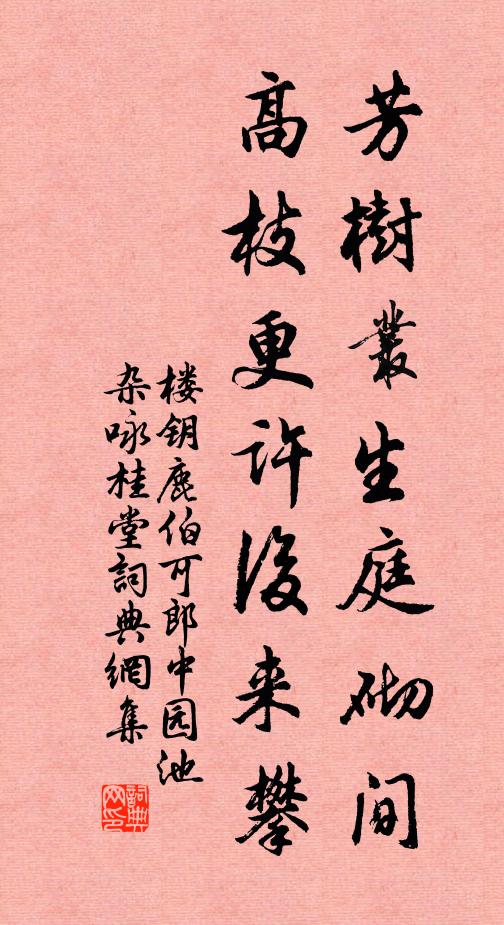 芳樹叢生庭砌间
高枝更许後来攀
楼钥鹿伯可郎中园池
杂咏桂堂詞典網集
詞典网印